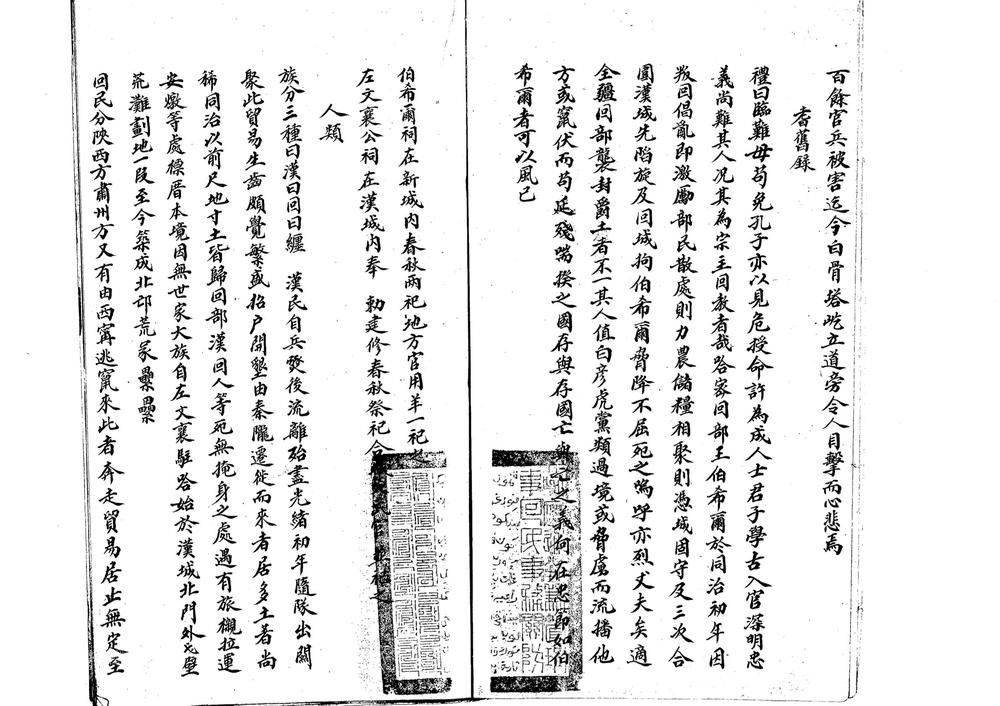 百餘官兵被害迄今白骨塔屹立道旁令人目擊而心悲焉
耆舊錄
禮曰臨難毋苟免孔子亦以見危授命許為成人士君子學古入官深明忠
義尚難其人况其為宗主回教者哉哈密回部王伯希爾於同治初年因
叛回倡亂即激勵部民散處則力農儲糧相聚則憑城固守及三次合
圍漢城先陷旋及回城拘伯希爾脅降不屈死之嗚呼亦烈丈夫矣適
全疆回部襲封爵土者不一其人值白彦虎黨類過境或脅虜而流播他
方或竄伏而苟延殘喘揆之國存與存國亡與亡之義何在忠節如伯
希爾者可以風已
伯希爾祠在新城內春秋兩祀地方官用羊一祀之
左文襄公祠在漢城內奉 勅建修春秋祭祀合
人類
族分三種曰漢曰回曰纏 漢民自兵燹後流離殆盡光緒初年隨隊出關
聚此貿易生齒頗覺繁盛招戶開墾由秦隴遷徙而來者居多土著尚
稀同治以前尺地寸土皆歸回部漢回人等死無掩身之處遇有旅櫬拉運
安燉等處標厝本境因無世家大族自左文襄駐哈始於漢城北門外戈壁
荒灘劃地一段至今築成北邙荒冢纍纍
回民分陝西方肅州方又有由西寧逃竄來此者奔走貿易居止無定至